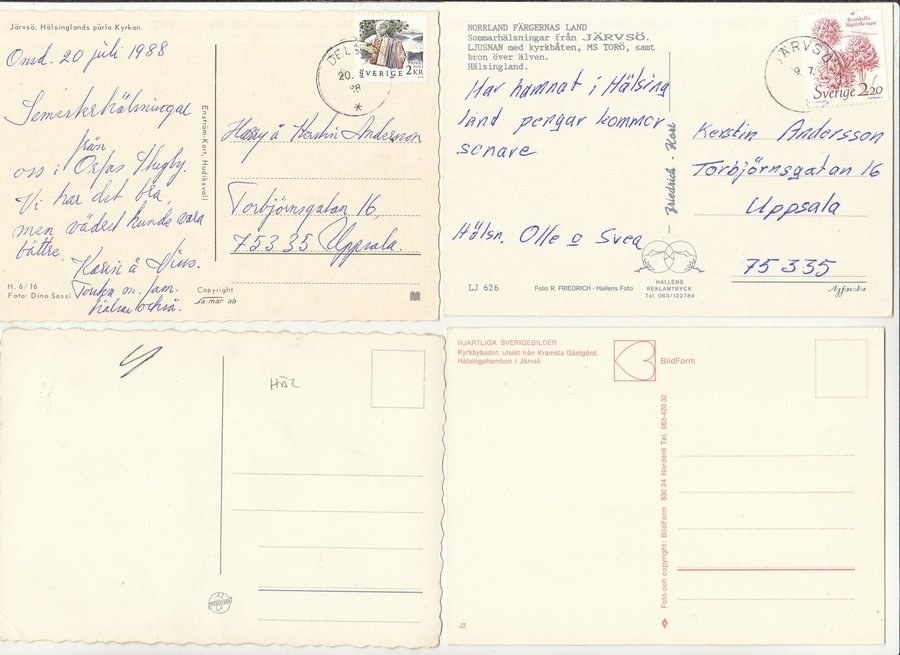 Järvsö. Hälsinglands pärla Kyrkan.
Onsd. 20 juli 1988
Semesterhälsningar
från
oss i
Vi har det bra,
men vädret kunde vara
bättre.
Karin å
m. fam.
hälsar också.
H. 6/16
Foto: Dino Sassi
Enström-Kort, Hudiksvall
Copyright
Sa-mär ab
20.
88
SVERIGE 2 KR
Harry å Kerstin Andersson
Torbjörnsgatan 16,
75335 Uppsala.
NORRLAND FÄRGERNAS LAND
Sommarhälsningar från JÄRVSÖ.
LJUSNAN med kyrkbåten, MS TORÖ, samt
bron över älven.
Hälsingland.
Har hamnat i Hälsing
land pengar kommer
senare
Hälsn. Olle o Svea
LJ 626
Foto: R. FRIEDRICH - Hallens Foto
Friedrich - Kort
HALLENS
REKLAMTRYCK
Tel. 063/122784
JÄRVSÖ
9.7.
Sverige 2.20
Kerstin Andersson
Torbjörnsgatan 16
Uppsala
75335
Agfacolor
HÄL
HJÄRTLIGA SVERIGEBILDER
Kyrkbybadet, utsikt från Kramsta Gästgård,
Hälsingehambon i Järvsö
BildForm
Foto och copyright: BildForm 830 24 Norderö Tel. 063-420 32
J2